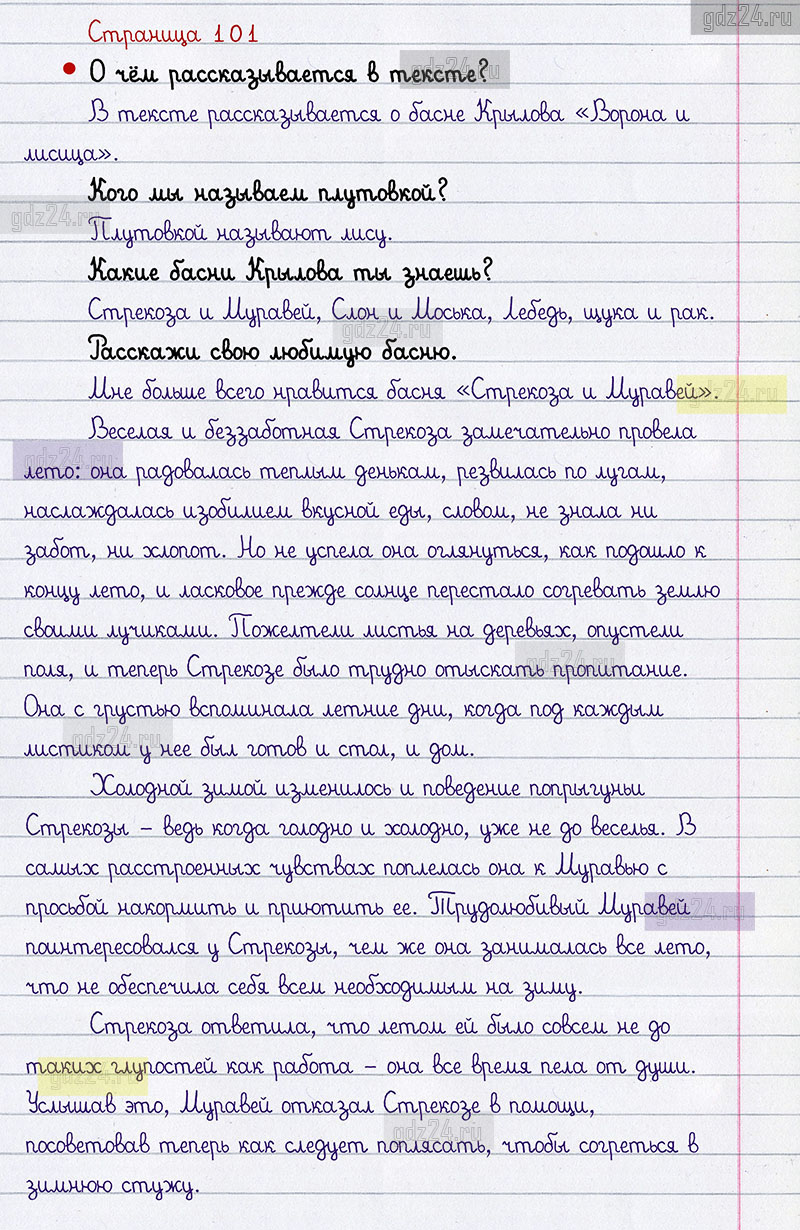 gdz24.ru
Страница 101
• О чём рассказывается в тексте?
gdz24.ru
В тексте рассказывается о басне Крылова «Ворона и
лисица».
Кого мы называем плутовкой?
gdz24.ru
Плутовкой называют лису.
Какие басни Крылова ты знаешь?
Стрекоза и Муравей, Слон и Моська, Лебедь, щука и рак.
gdz24.ru
Расскажи свою любимую басню.
Мне больше всего нравится басня «Стрекоза и Муравей».
gdz24.ru
Веселая и беззаботная Стрекоза замечательно провела
gdz24.ru
лето: она радовалась теплым денькам, резвилась по лугам,
наслаждалась изобилием вкусной еды, словом, не знала ни
забот, ни хлопот. Но не успела она оглянуться, как подошло к
концу лето, и ласковое прежде солнце перестало согревать землю
своими лучиками. Пожелтели листья на деревьях, опустели
поля, и теперь Стрекозе было трудно отыскать пропитание.
gdz24.ru
Она с грустью вспоминала летние дни, когда под каждым
листиком у нее был готов и стол, и дом.
gdz24.ru
Холодной зимой изменилось и поведение попрыгуньи
Стрекозы – ведь когда голодно и холодно, уже не до веселья. В
самых расстроенных чувствах поплелась она к Муравью с
просьбой накормить и приютить ее. Трудолюбивый Муравей
gdz24.ru
поинтересовался у Стрекозы, чем же она занималась все лето,
что не обеспечила себя всем необходимым на зиму.
Стрекоза ответила, что летом ей было совсем не до
таких глупостей как работа – она все время пела от души.
gdz24.ru
Услышав это, Муравей отказал Стрекозе в помощи,
gdz24.ru
посоветовав теперь как следует поплясать, чтобы согреться в
зимнюю стужу.